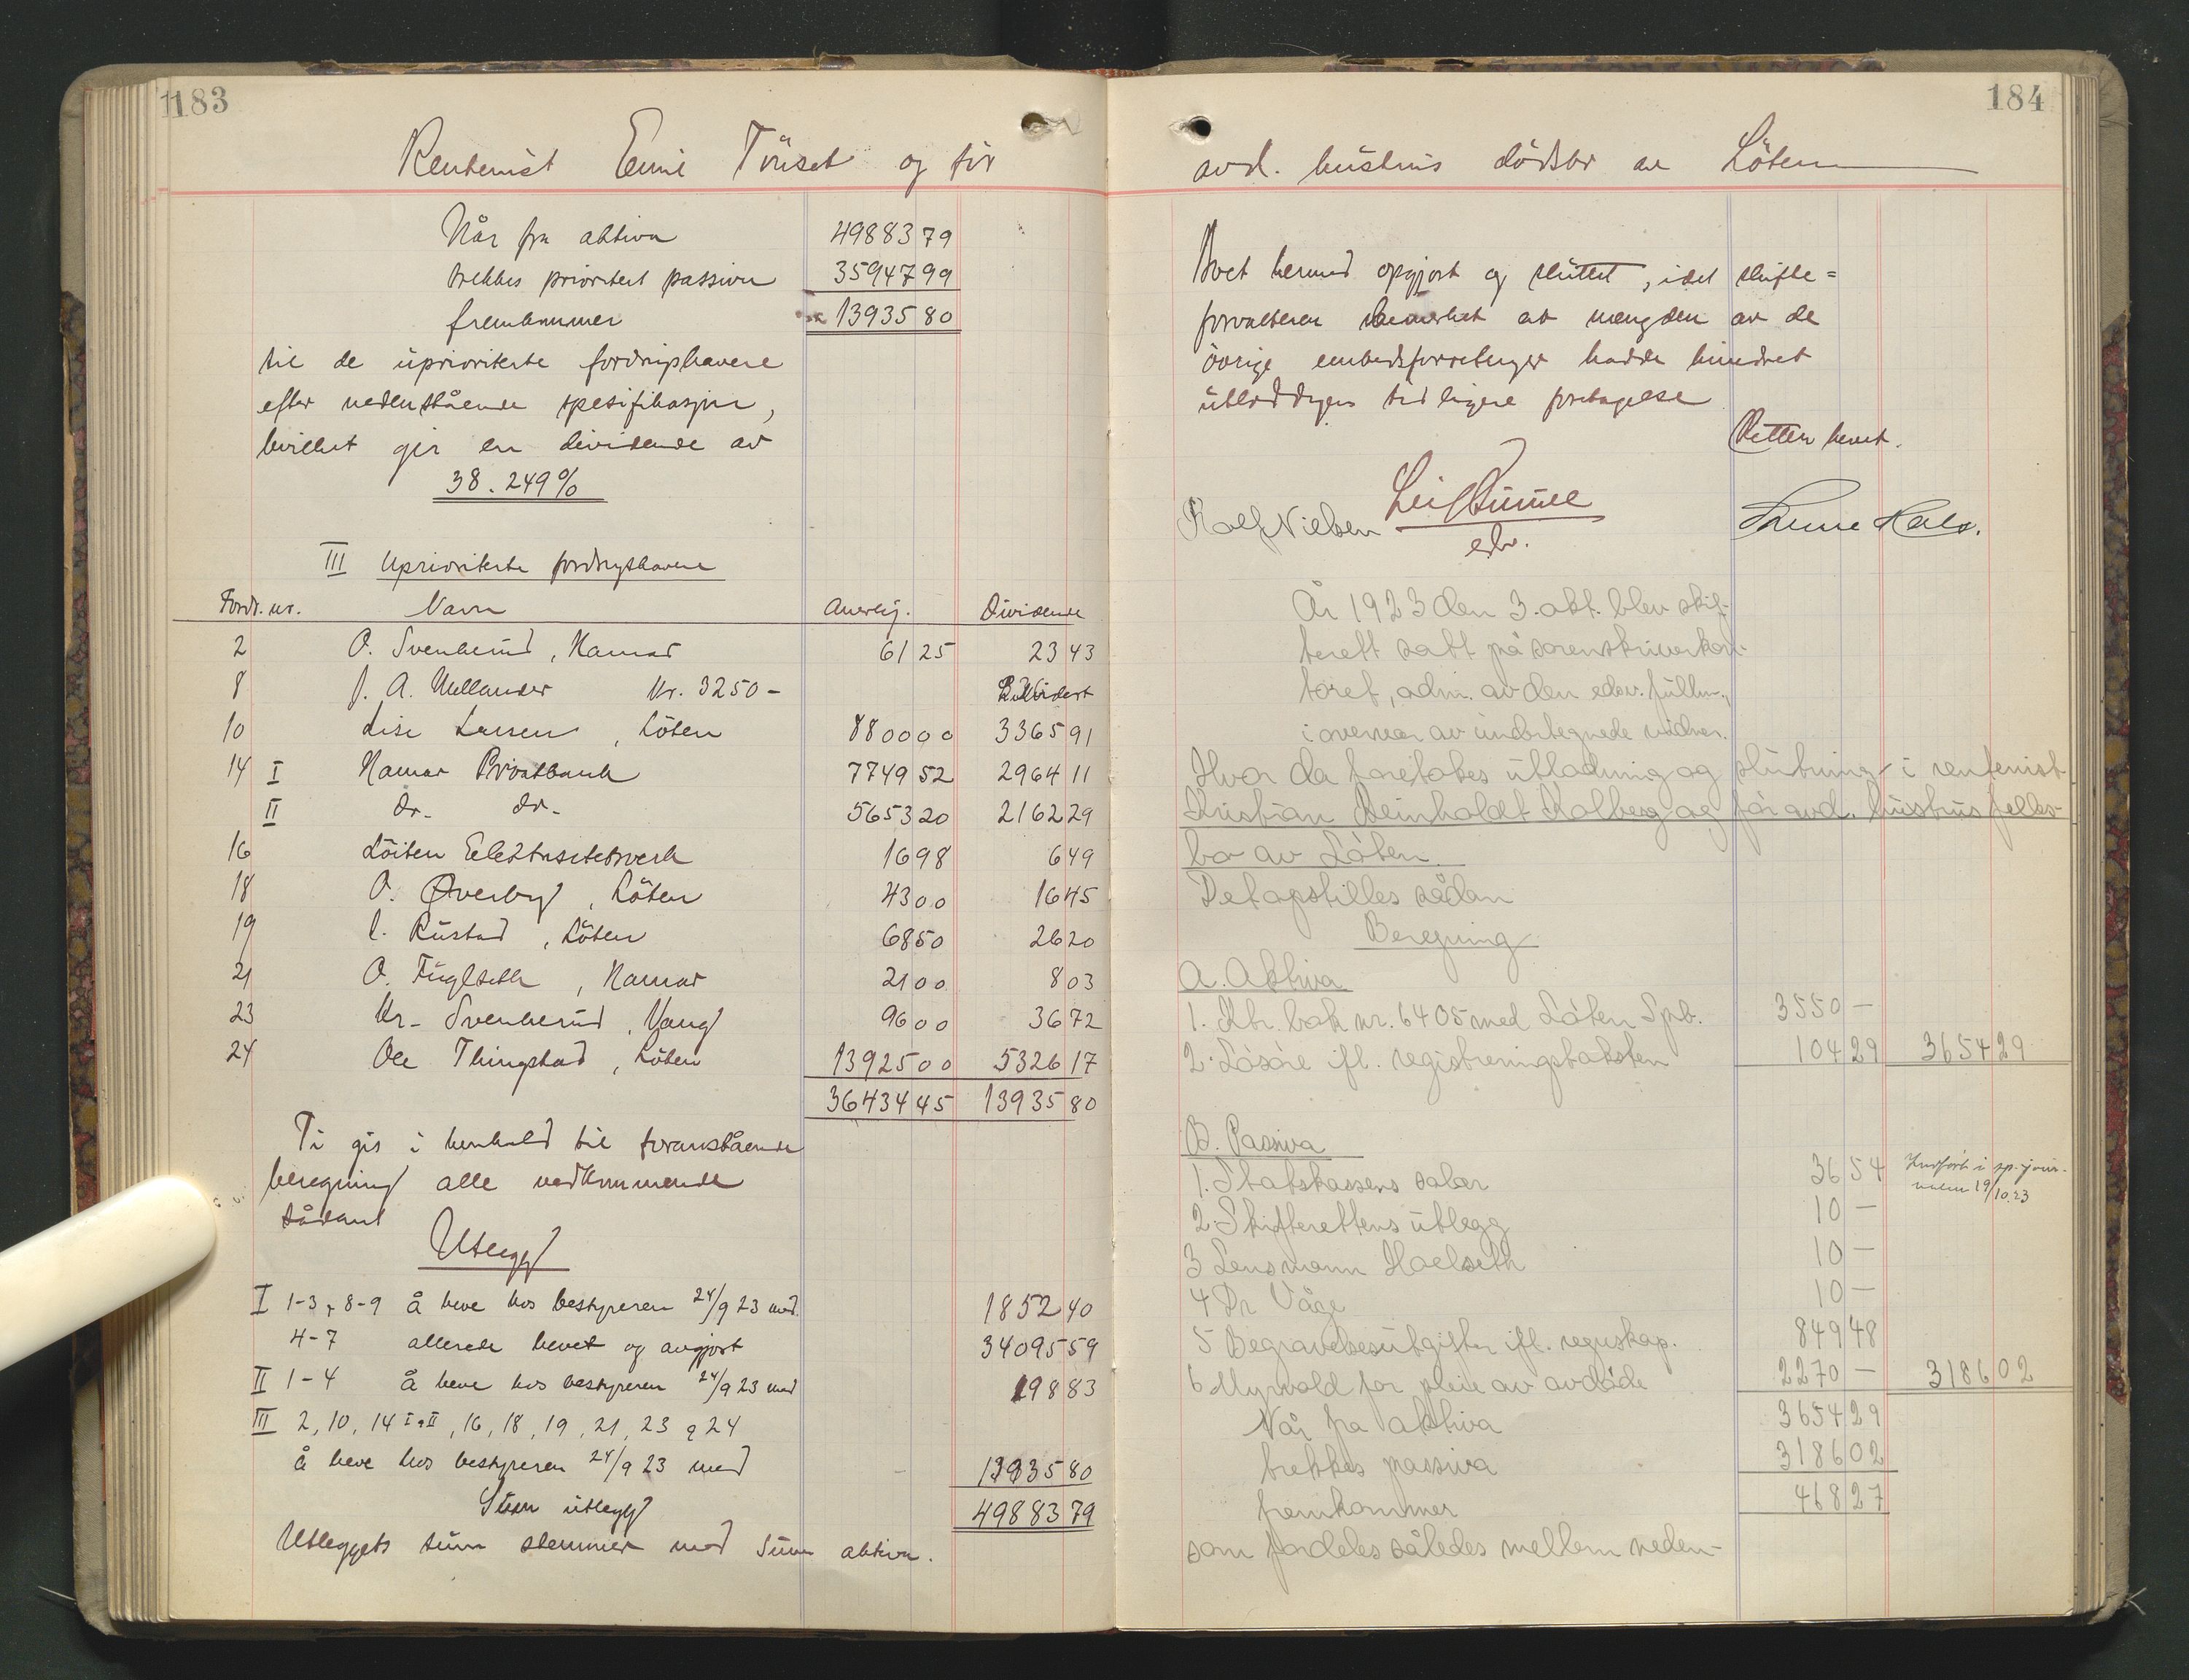 183
Rentenist Emil Tönset og før
Når fra aktiva 49883 79
trekkes prioritert passiva 35947 99
fremkommer 13935 80
til de uprioriterte fordringshavere
efter nedenstående spesifikasjon,
hvilket gir en dividende av
38.249%
III Uprioriterte fordringshavere
Fordr. nr. Navn Anerkj. Dividende
2 O. Svenkerud, Hamar 61 25 23 43
8 J. A. Mellander Kr. 3250 - Likvidert
10 Lise Larsen, Löten 8800 00 3365 91
14 I Hamar Privatbank 7749 52 2964 11
II do. do. 5653 20 2162 29
16 Löiten Elektrisitetsverk 16 98 6 49
18 O. Øverby, Löten 43 00 16 45
19 L. Rustad, Löten 68 50 26 20
21 O. Fuglseth, Hamar 21 00 8 03
23 Kr. Svenkerud, Vang 96 00 36 72
24 Ole Thingstad, Löten 13925 00 5326 17
36434 45 13935 80
Ti gis i henhold til foranstående
beregning alle vedkommende
sådant
Utlegg
I 1-3, 8-9 å heve hos bestyreren 24/9 23 med 1852 40
4-7 allerede hevet og avgjort 34095 59
II 1-4 å heve hos bestyreren 24/9 23 med 198 83
III 2, 10, 14 I & II, 16, 18, 19, 21, 23 & 24
å heve hos bestyreren 24/9 23 med 13935 80
Sum utlegg 49883 79
Utleggets sum stemmer med sum aktiva.
184
avd. hustrus dödsbo av Löten
Boet hermed opgjort og sluttet, idet skifte=
forvalteren bemerket at mengden av de
övrige embedsforretninger hadde hindret
utlodningens tidligere foretagelse
Retten hevet.
Rolf Nielsen
edsv.
År 1923 den 3. okt. blev skif-
terett satt på sorenskriverkon-
toret, adm. av den edsv. fullm.,
i overvær av undertegnede vidner.
Hvor da foretokes utlodning og slutning i rentenist
Kristian Reinholdt Kolberg og før avd. hustrus felles-
bo av Löten.
Det opstilles sådan
Beregning
A. Aktiva
1. Ktr. bok nr. 6405 med Löten Spb. 3550 —
2. Lösöre ifl. registreringstaksten 104 29 3654 29
B. Passiva
1. Statskassens salær 36 54 Innført i sp. jour-
nalen 19/10.23
2. Skifterettens utlegg 10 —
3 Lensmann Hoelseth 10 —
4 Dr Våge 10 —
5 Begravelsesutgifter ifl. regnskap. 849 48
6 Myrvold for pleie av avdöde 2270 — 3186 02
Når fra aktiva 3654 29
trekkes passiva 3186 02
fremkommer 468 27
som fordeles således mellem neden-